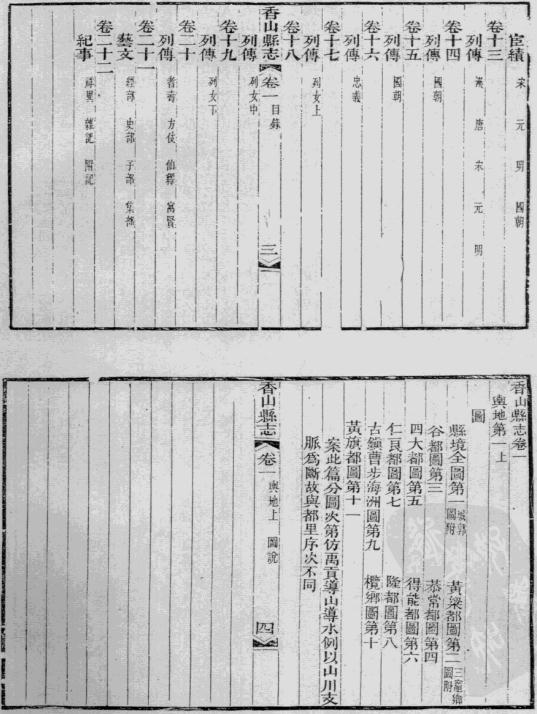 宦績
宋 元 明 國朝
卷十三
列傳
漢 唐 宋 元 明
卷十四
列傳
國朝
卷十五
列傳
國朝
卷十六
列傳
忠義
卷十七
列傳
列女上
卷十八
香山縣志 卷一 目錄 三
列傳
列女中
卷十九
列傳
列女下
卷二十
列傳
耆壽 方伎 仙釋 寓賢
卷二十一
藝文
經部 史部 子部 集部
卷二十二
紀事
祥異 雜記 附記
香山縣志卷一
輿地第一上
圖
縣境全圖第一 城郭圖附 黃梁都圖第二 三竈鄉圖附
谷都圖第三 恭常都圖第四
四大都圖第五 得能都圖第六
仁良都圖第七 隆都圖第八
古鎮曹步海洲圖第九 欖鄉圖第十
黃旗都圖第十一
案此篇分圖次第仿禹貢導山導水例以山川支
脈為斷故與都里序次不同
香山縣志 卷一 輿地上 圖說 四